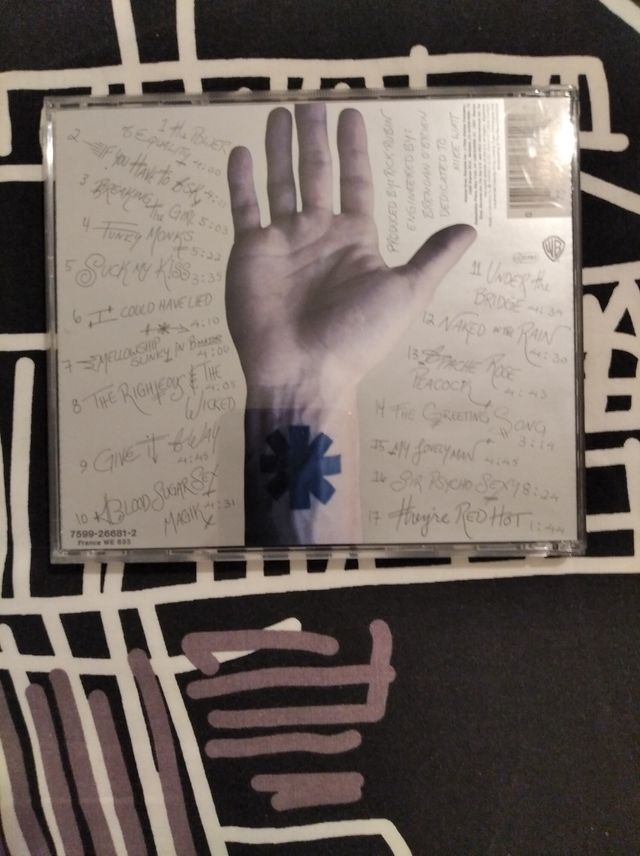 1 the POWER
of EQUALITY 4:00
2 IF YOU HAVE TO ASK
3 BREAKING
the GIRL 5:03
4 FUNKY MONKS
5:22
5 SUCK MY KISS 3:35
6 I COULD HAVE LIED
4:10
7 MELLOWSHIP
SLINKY IN
4:00
8 THE RIGHTEOUS & THE
WICKED 4:05
9 GIVE IT AWAY
4:45
10 BLOOD SUGAR SEX
MAGIK 4:31
7599-26681-2
France WE 833
PRODUCED BY: RICK RUBIN
ENGINEERED BY:
BRENDAN O'BRIEN
DEDICATED TO
MIKE WATT
WB
11 UNDER the
BRIDGE 4:24
12 NAKED in the RAIN
4:30
13 APACHE ROSE
PEACOCK 4:43
14 THE GREETING SONG
3:14
15 MY LOVELY MAN
4:45
16 SIR PSYCHO SEXY 8:24
17 they're RED HOT 1:44